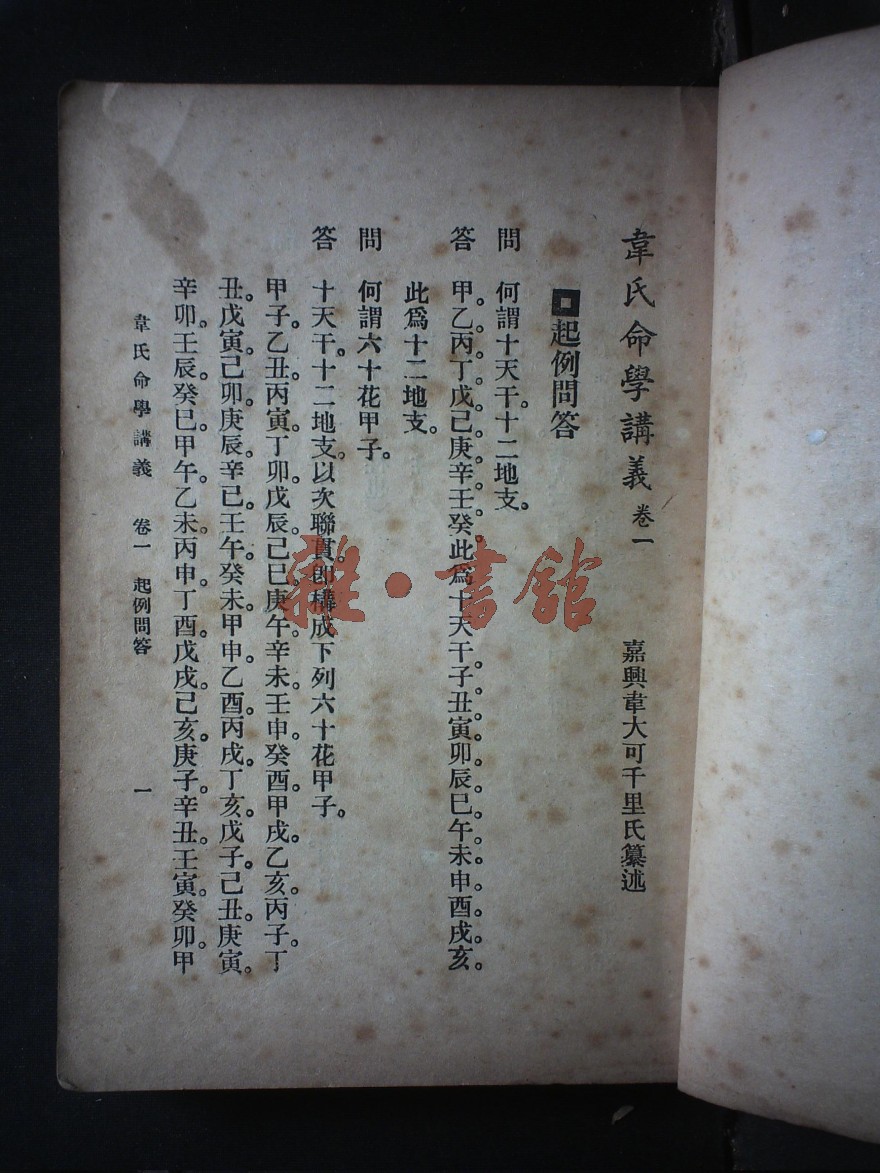 韋氏命學講義 卷一 嘉興韋大可千里氏纂述
起例問答
問 何謂十天干。十二地支。
答 甲。乙。丙。丁。戊。己。庚。辛。壬。癸。此爲十天干。子。丑。寅。卯。辰。巳。午。未。申。酉。戌。亥。
此爲十二地支。
問 何謂六十花甲子。
答 十天干。十二地支。以次聯貫。卽構成下列六十花甲子。
甲子。乙丑。丙寅。丁卯。戊辰。己巳。庚午。辛未。壬申。癸酉。甲戌。乙亥。丙子。丁
丑。戊寅。己卯。庚辰。辛巳。壬午。癸未。甲申。乙酉。丙戌。丁亥。戊子。己丑。庚寅。
辛卯。壬辰。癸巳。甲午。乙未。丙申。丁酉。戊戌。己亥。庚子。辛丑。壬寅。癸卯。甲
韋氏命學講義 卷一 起例問答 一
雜·書館